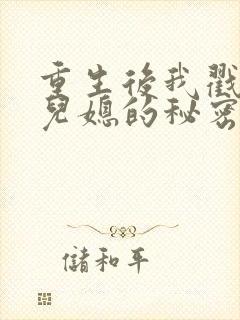 重生後我戳
兒媳的秘密
儲和平